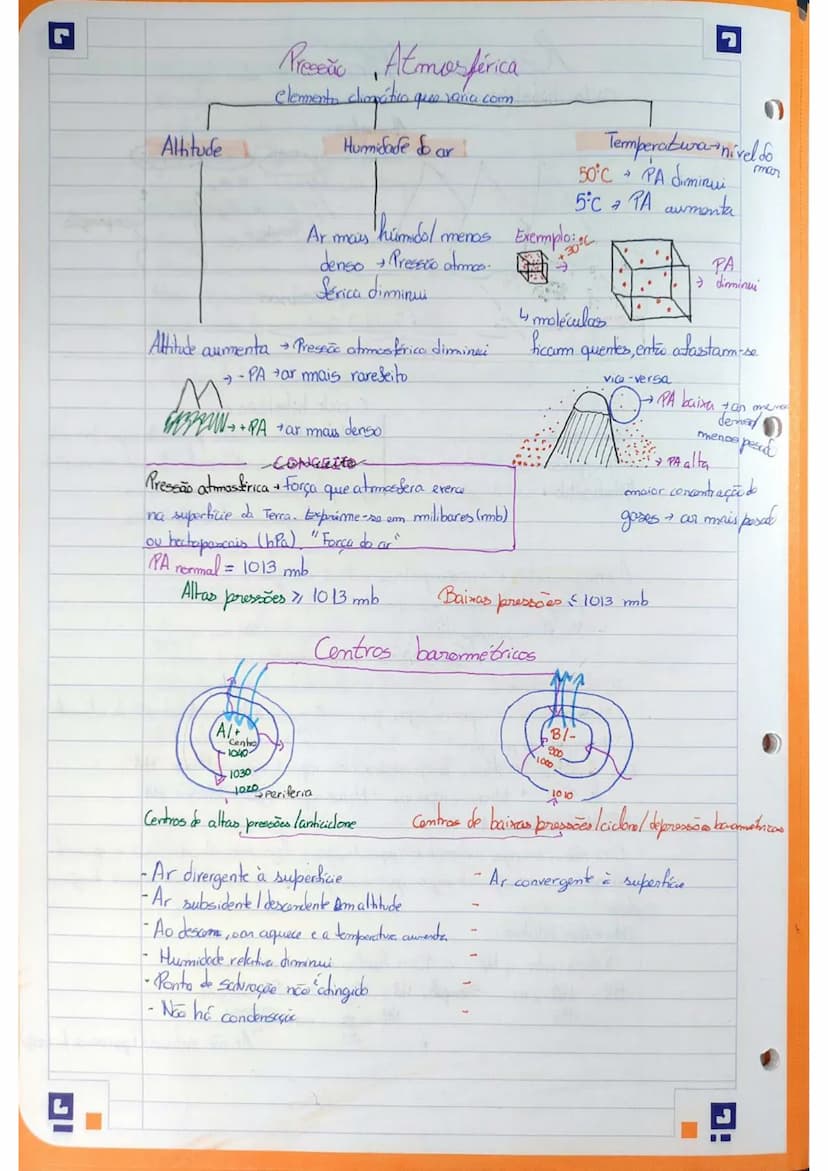 Pressão Atmosférica
elemento climático que varia com
Altitude
Humidade do ar
Temperatura → nível do mar
50°C → PA diminui
5°C → PA aumenta
Ar mais húmido/menos
denso → Pressão atmos-
férica diminui
Exemplo:
+30°C
→ PA
diminui
↳ moléculas
ficam quentes, então afastam-se
vice-versa
Altitude aumenta → Pressão atmosférica diminui
→ - PA → ar mais rarefeito
→ + PA → ar mais denso
→ PA baixa → ar menos
denso/
menos pesado
→ PA alta
maior concentração de
gases → ar mais pesado
CONCEITO
Pressão atmosférica → Força que atmosfera exerce
na superfície da Terra. Exprime-se em milibares (mb)
ou hectopascais (hPa). "Força do ar"
PA normal = 1013 mb
Altas pressões ≥ 1013 mb
Baixas pressões ≤ 1013 mb
Centros barométricos
A/+
centro
1040
1030
1020 → periferia
B/-
900
1000
1010
Centros de altas pressões/anticiclone
Centros de baixas pressões/ciclone/depressões barométricas
- Ar divergente à superfície
- Ar subsidente/descendente em altitude
- Ao descer, o ar aquece e a temperatura aumenta
- Humidade relativa diminui
- Ponto de saturação não é atingido
- Não há condensação
- Ar convergente à superfície
-
-
-
-
-